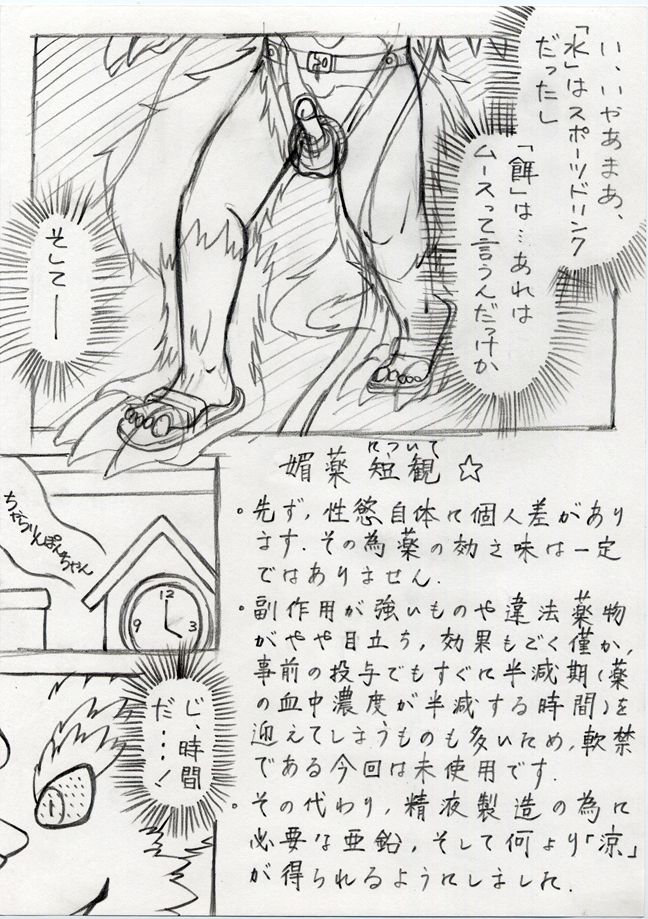 い、いやあまあ、
「水」はスポーツドリンク
だったし
「餌」は…あれは
ムースって言うんだっけか
そしてー
媚薬短観☆
について
。先ず，性慾自体に個人差があり
ます．その為薬の効き味は一定
ではありません．
。副作用が強いものや違法薬物
がやや目立ち，効果もごく僅か，
事前の投与でもすぐに半減期(薬
の血中濃度が半減する時間)を
迎えてしまうものも多いため，軟禁
である今回は未使用です．
。その代わり，精液製造の為に
必要な亜鉛，そして何より「涼」
が得られるようにしました．
ちゃらりんぽんちゃん
12
9
3
じ、時間
だ…！